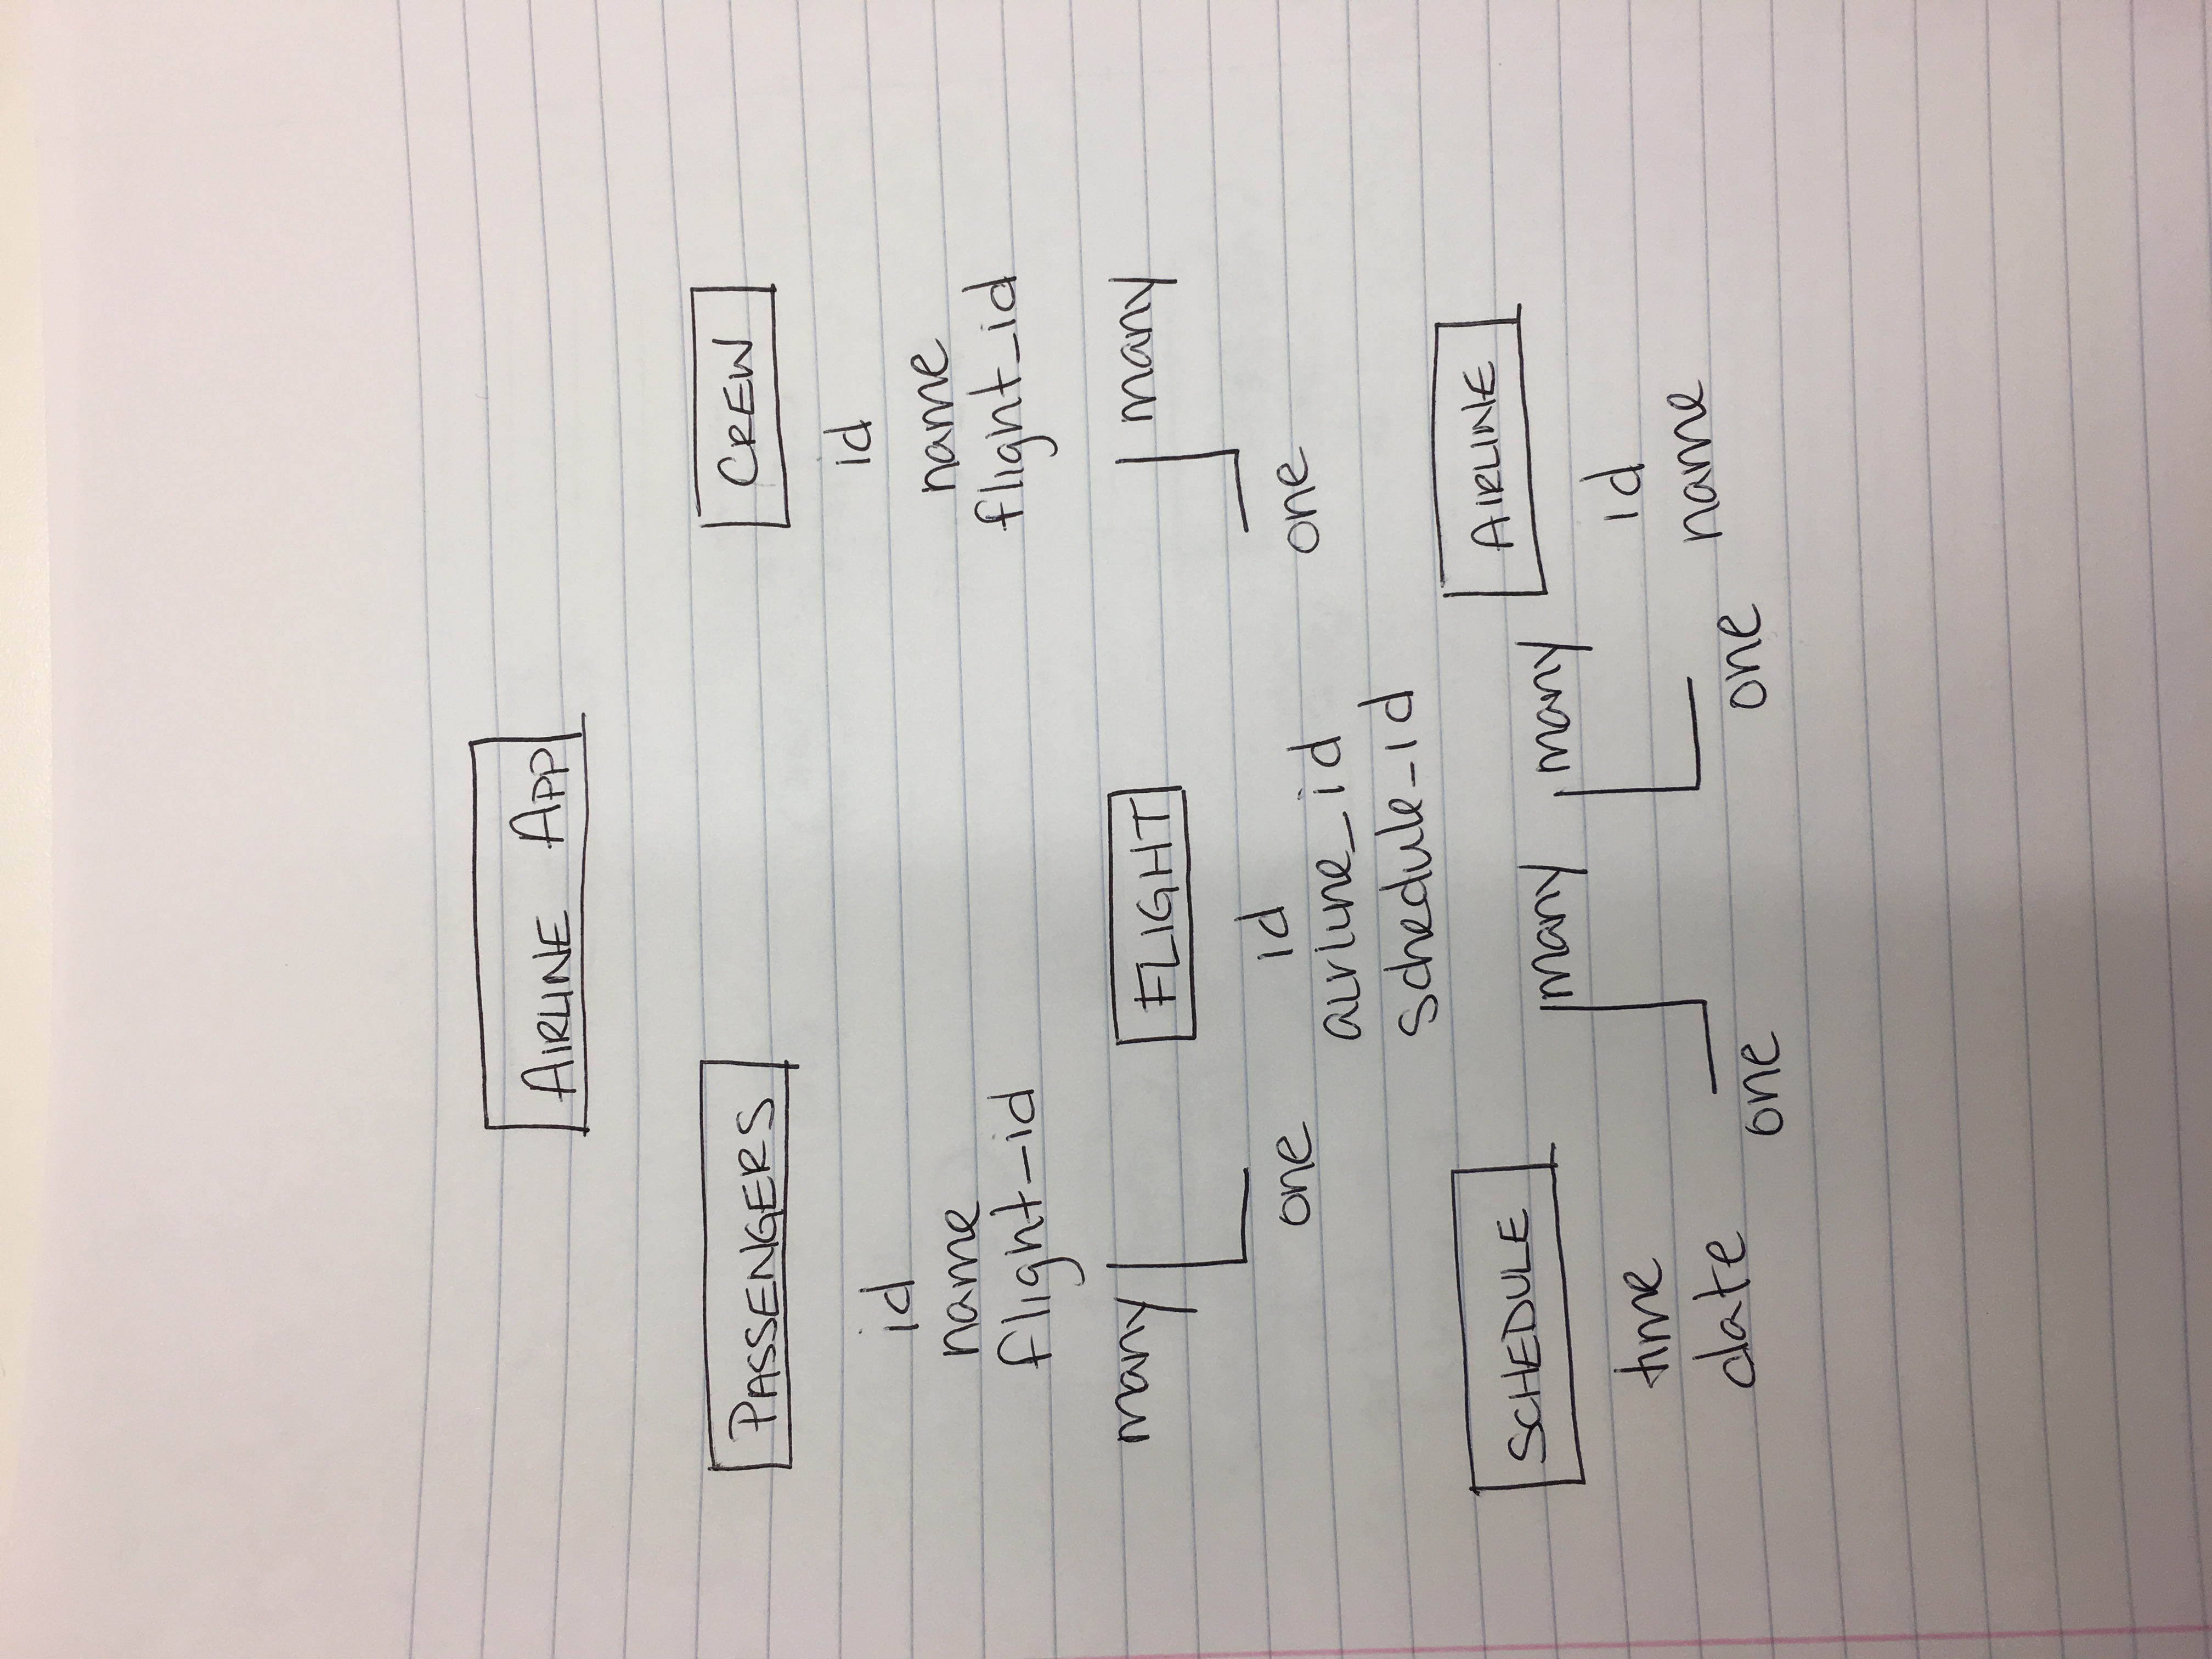 AIRLINE APP
PASSENGERS
id
name
flight_id
many
one
CREW
id
name
flight_id
many
one
FLIGHT
id
airline_id
schedule_id
SCHEDULE
time
date
many
one
many
one
AIRLINE
id
name